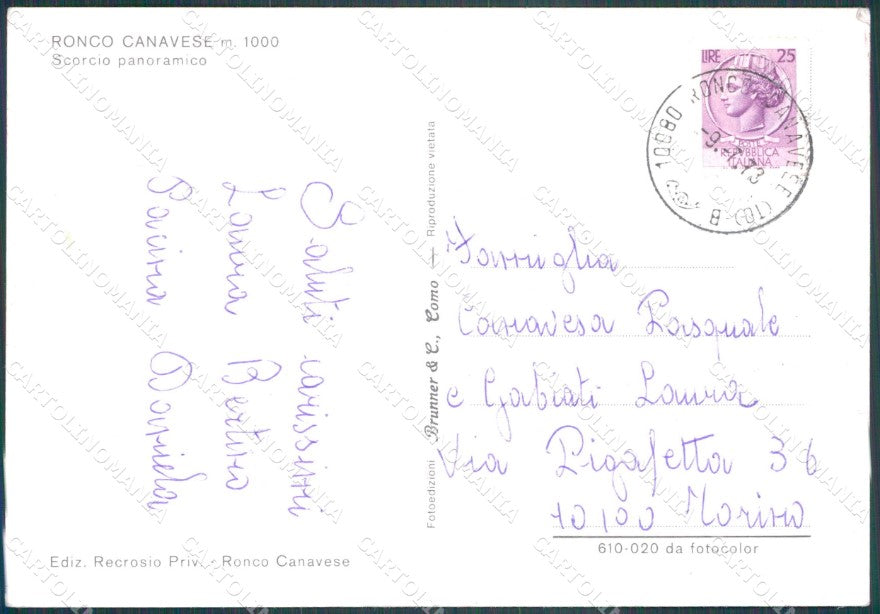 RONCO CANAVESE m. 1000
Scorcio panoramico
LIRE 25
POSTE
REPUBBLICA
ITALIANA
10080 RONCO CANAVESE (TO) B
Saluti carissimi
Laura Bertino
Daniela
Fotoedizioni Brunner & C., Como — Riproduzione vietata
Famiglia
Canavesa Pasquale
e Gabiati Laura
Via Pigafetta 36
10100 Torino
610-020 da fotocolor
Ediz. Recrosio Priv. - Ronco Canavese
CARTOLINOMANIA